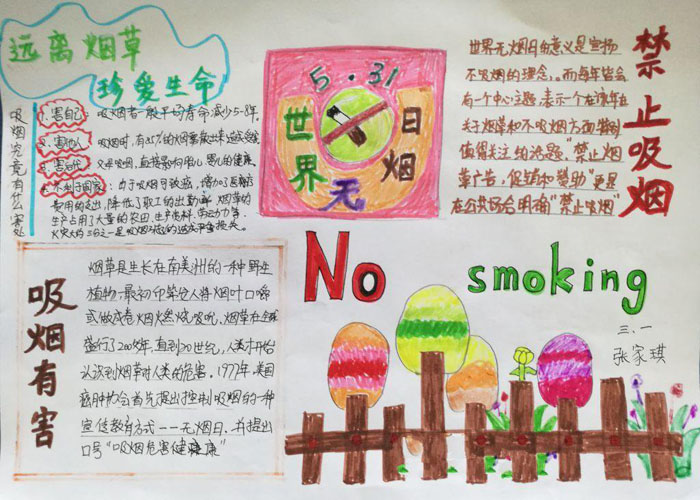 远离烟草
珍爱生命
吸烟究竟有什么害处
1. 害自己:吸烟者一般平均寿命减少5-8年。
2. 害他人
3. 害后代
4. 不利于国家:由于吸烟可致癌,增加了医疗
费用的支出,降低了职工的出勤率 烟草的
生产占用了大量的农田、生产资料、劳动力等。
5·31
世界无烟日
世界无烟日的意义是宣扬
不吸烟的理念。而每年皆会
有一个中心主题,表示一个在该年在
关于烟草和不吸烟方面特别
值得关注的话题,"禁止烟
草广告,促销和赞助"更是
在公共场合明确"禁止吸烟"
禁止吸烟
吸烟有害
烟草是生长在南美洲的一种野生
植物,最初印第安人将烟叶口嚼
或做成卷烟燃烧吸吮,烟草在全球
盛行了200多年,直到20世纪,人类才开始
认识到烟草对人类的危害。1977年,美国
癌肿协会首先提出控制吸烟的一种
宣传教育方式——无烟日,并提出
口号"吸烟危害健康"
No smoking
三、一
张家琪